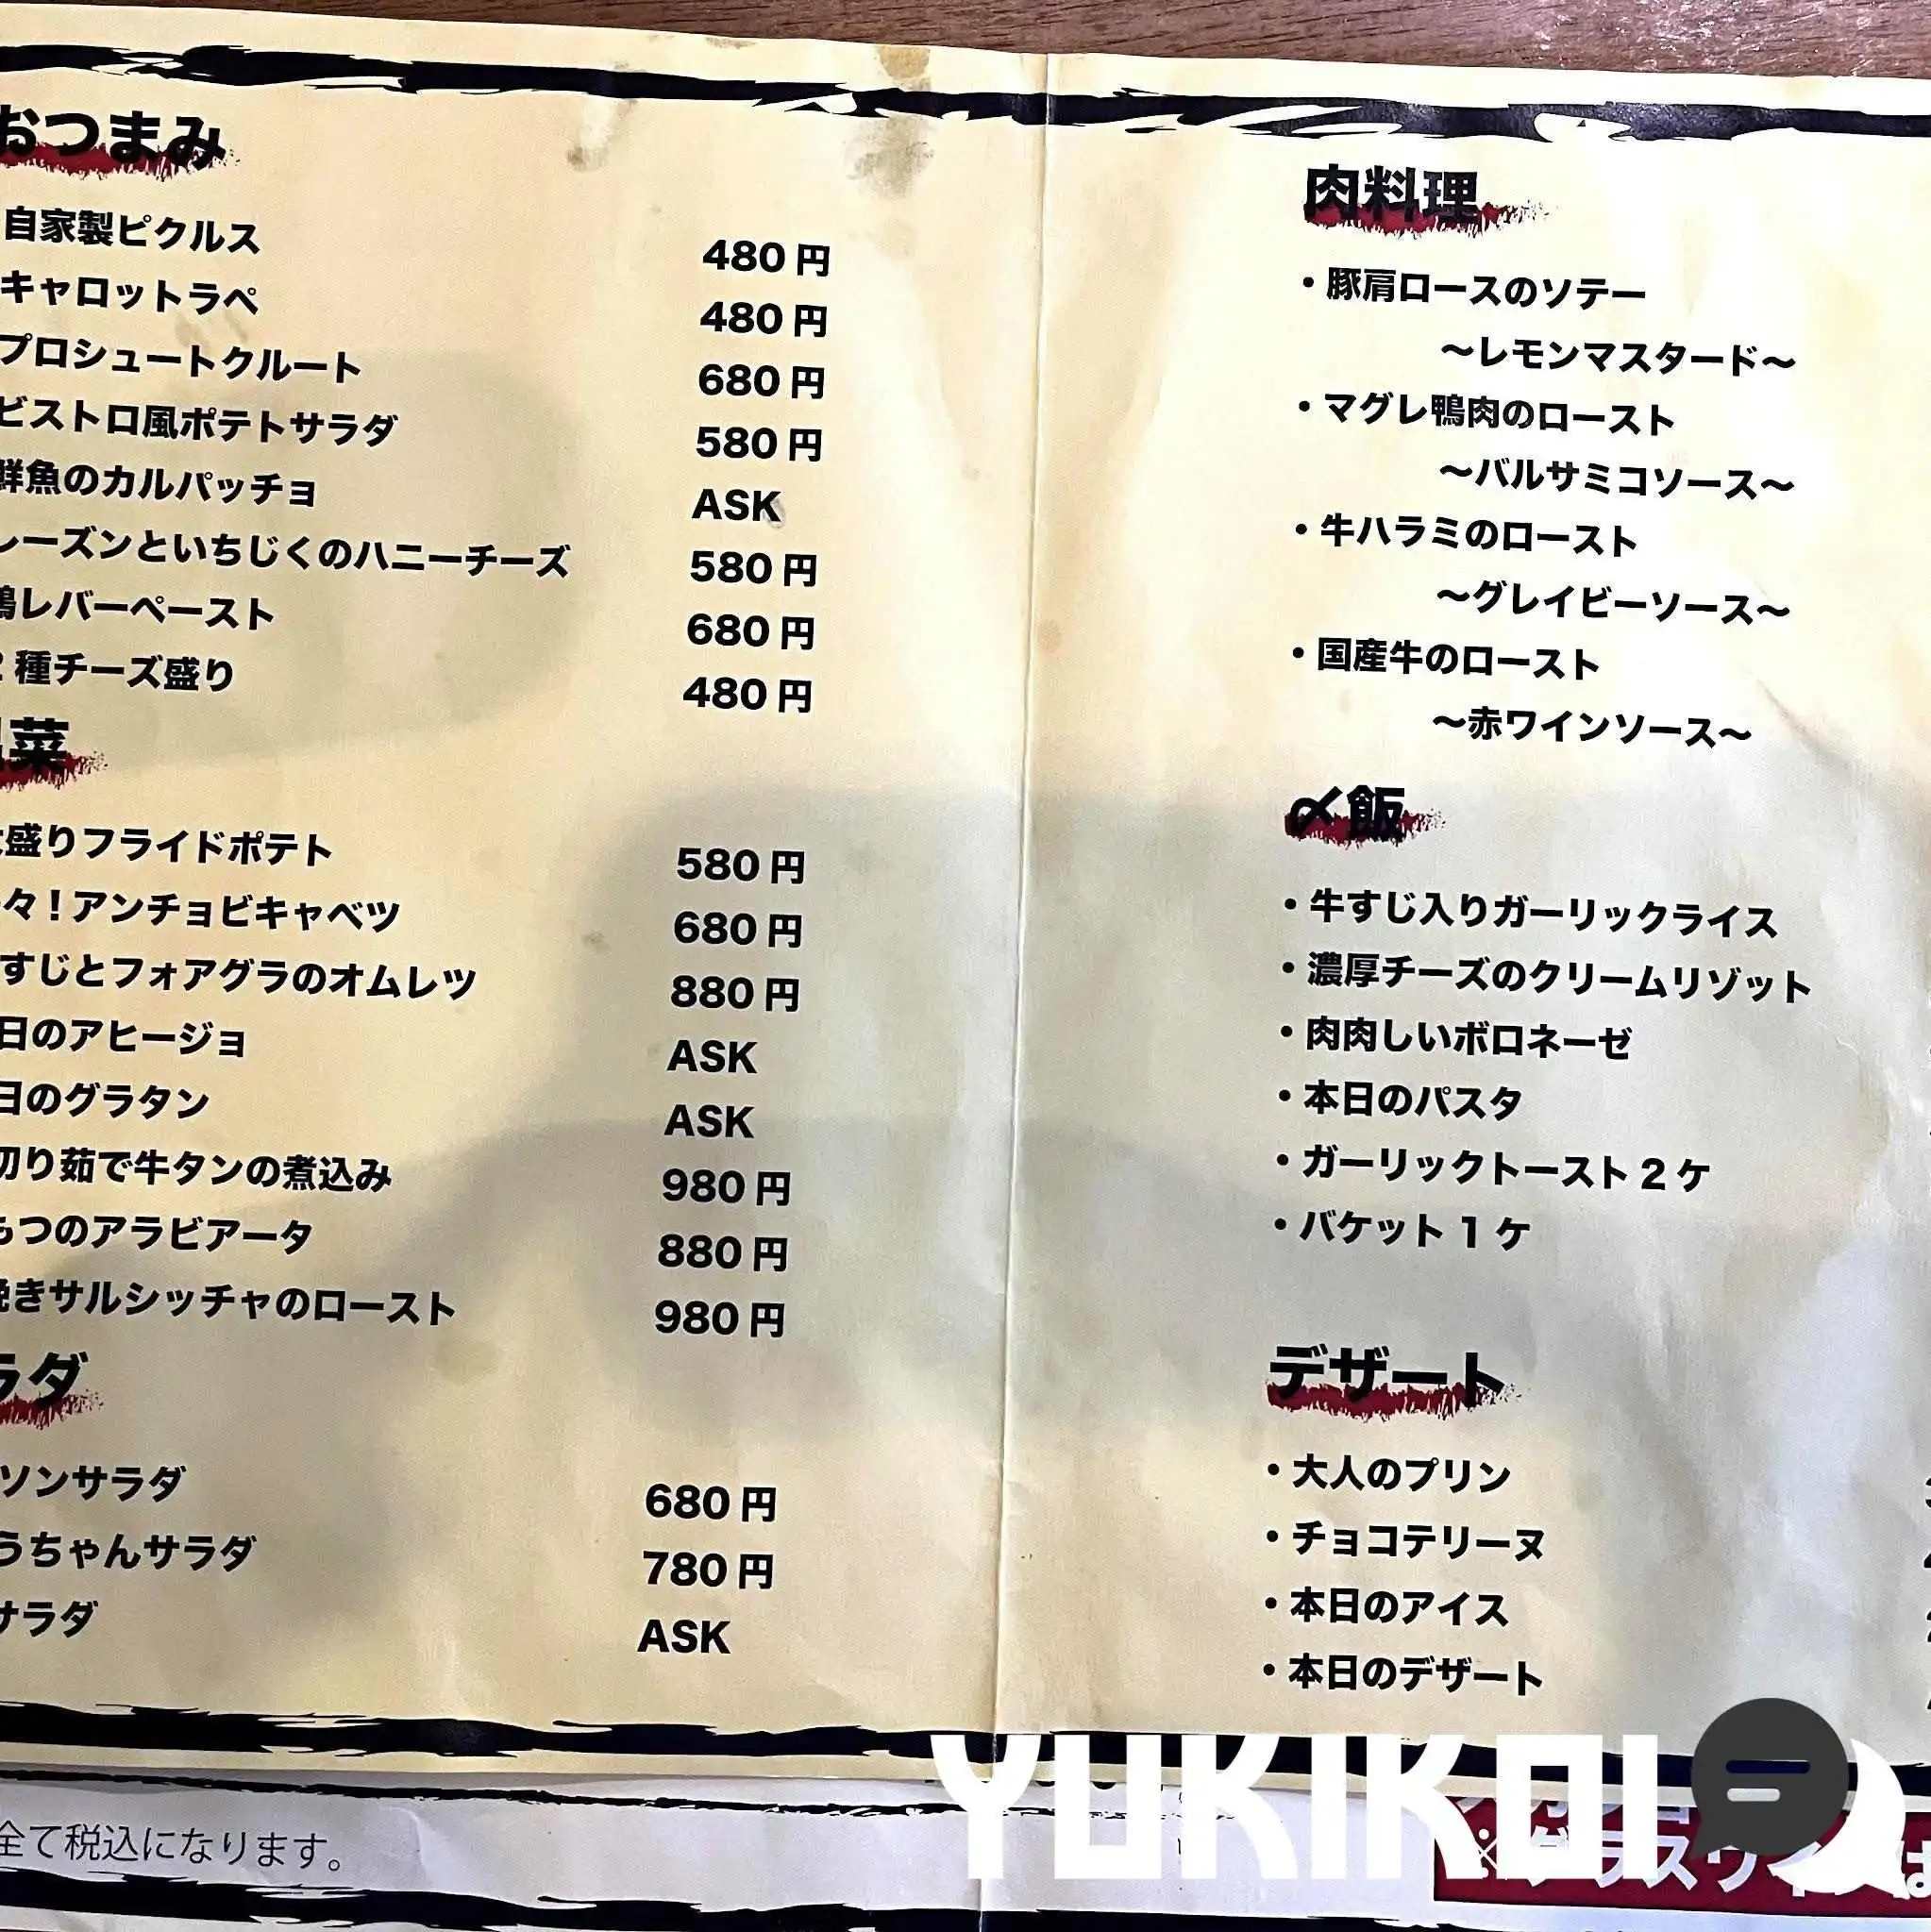 おつまみ
自家製ピクルス 480円
キャロットラペ 480円
プロシュートクルート 680円
ビストロ風ポテトサラダ 580円
鮮魚のカルパッチョ ASK
レーズンといちじくのハニーチーズ 580円
レバーペースト 680円
2種チーズ盛り 480円
菜
盛りフライドポテト 580円
々！アンチョビキャベツ 680円
すじとフォアグラのオムレツ 880円
日のアヒージョ ASK
日のグラタン ASK
切り茹で牛タンの煮込み 980円
もつのアラビアータ 880円
挽きサルシッチャのロースト 980円
ラダ
ソンサラダ 680円
うちゃんサラダ 780円
サラダ ASK
全て税込になります。
肉料理
・豚肩ロースのソテー
〜レモンマスタード〜
・マグレ鴨肉のロースト
〜バルサミコソース〜
・牛ハラミのロースト
〜グレイビーソース〜
・国産牛のロースト
〜赤ワインソース〜
〆飯
・牛すじ入りガーリックライス
・濃厚チーズのクリームリゾット
・肉肉しいボロネーゼ
・本日のパスタ
・ガーリックトースト2ケ
・バケット1ケ
デザート
・大人のプリン
・チョコテリーヌ
・本日のアイス
・本日のデザート
YUKIKOI